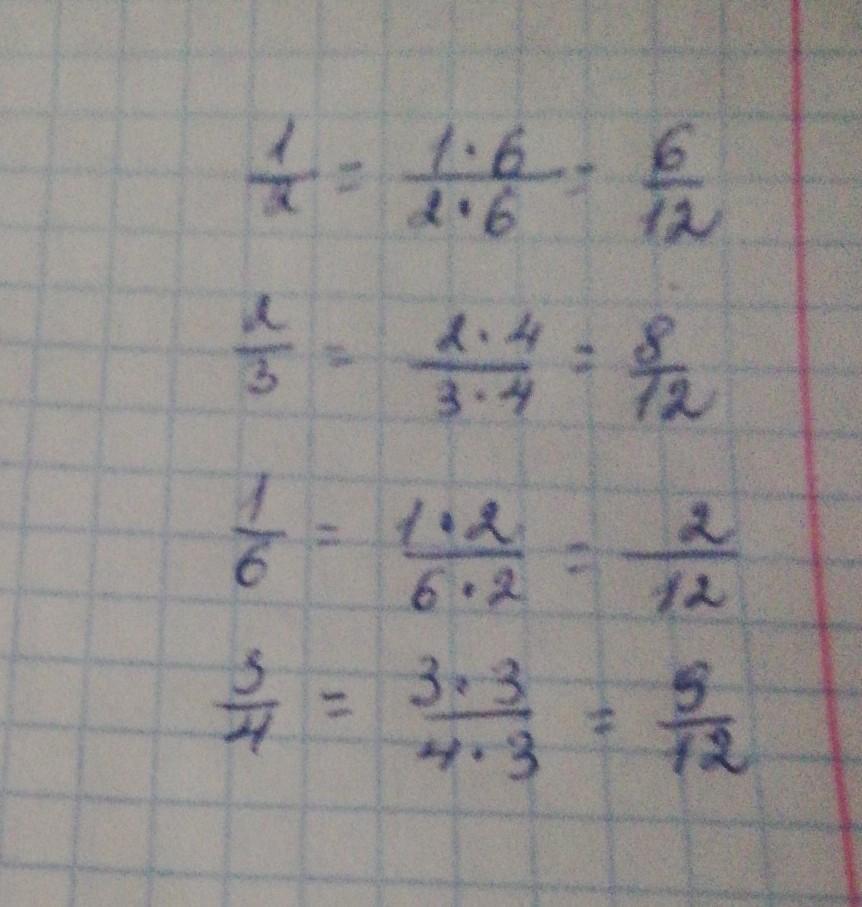 1/2 = 1·6/2·6 = 6/12
2/3 = 2·4/3·4 = 8/12
1/6 = 1·2/6·2 = 2/12
3/4 = 3·3/4·3 = 9/12